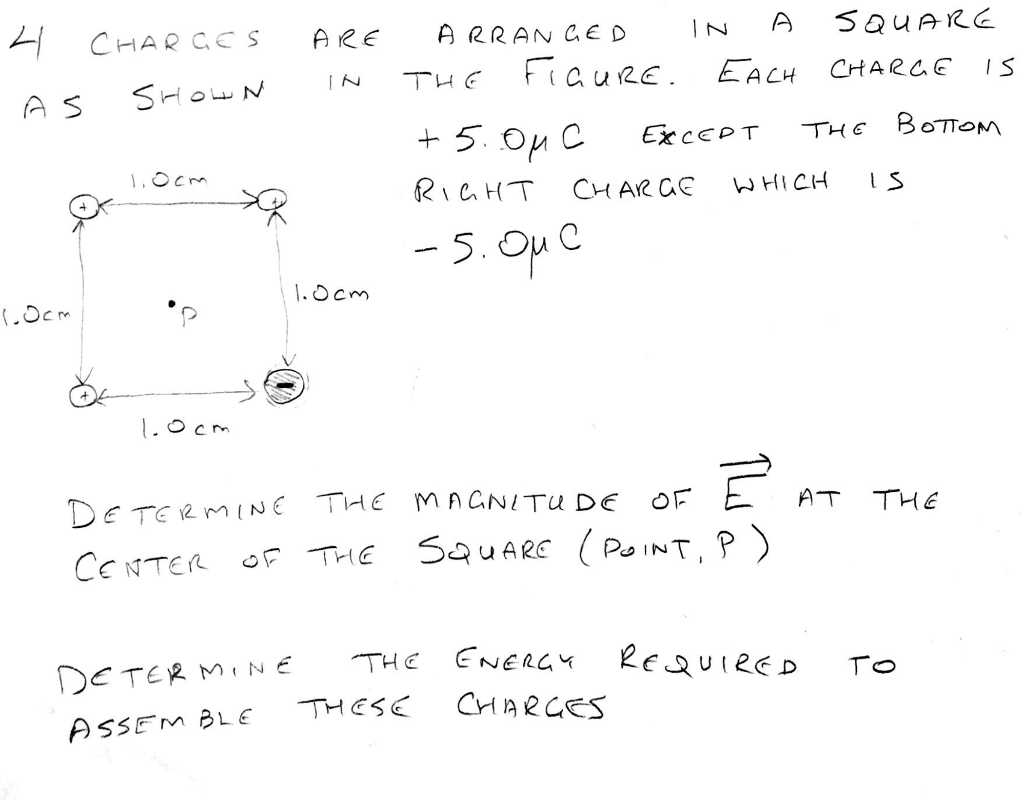 4 CHARGES ARE ARRANGED IN A SQUARE
AS SHOWN IN THE FIGURE. EACH CHARGE IS
+ 5.0μC EXCEPT THE BOTTOM
RIGHT CHARGE WHICH IS
- 5.0μC
1.0cm
+ +
1.0cm
1.0cm
P
+ -
1.0cm
DETERMINE THE MAGNITUDE OF E AT THE
CENTER OF THE SQUARE (POINT, P)
DETERMINE THE ENERGY REQUIRED TO
ASSEMBLE THESE CHARGES